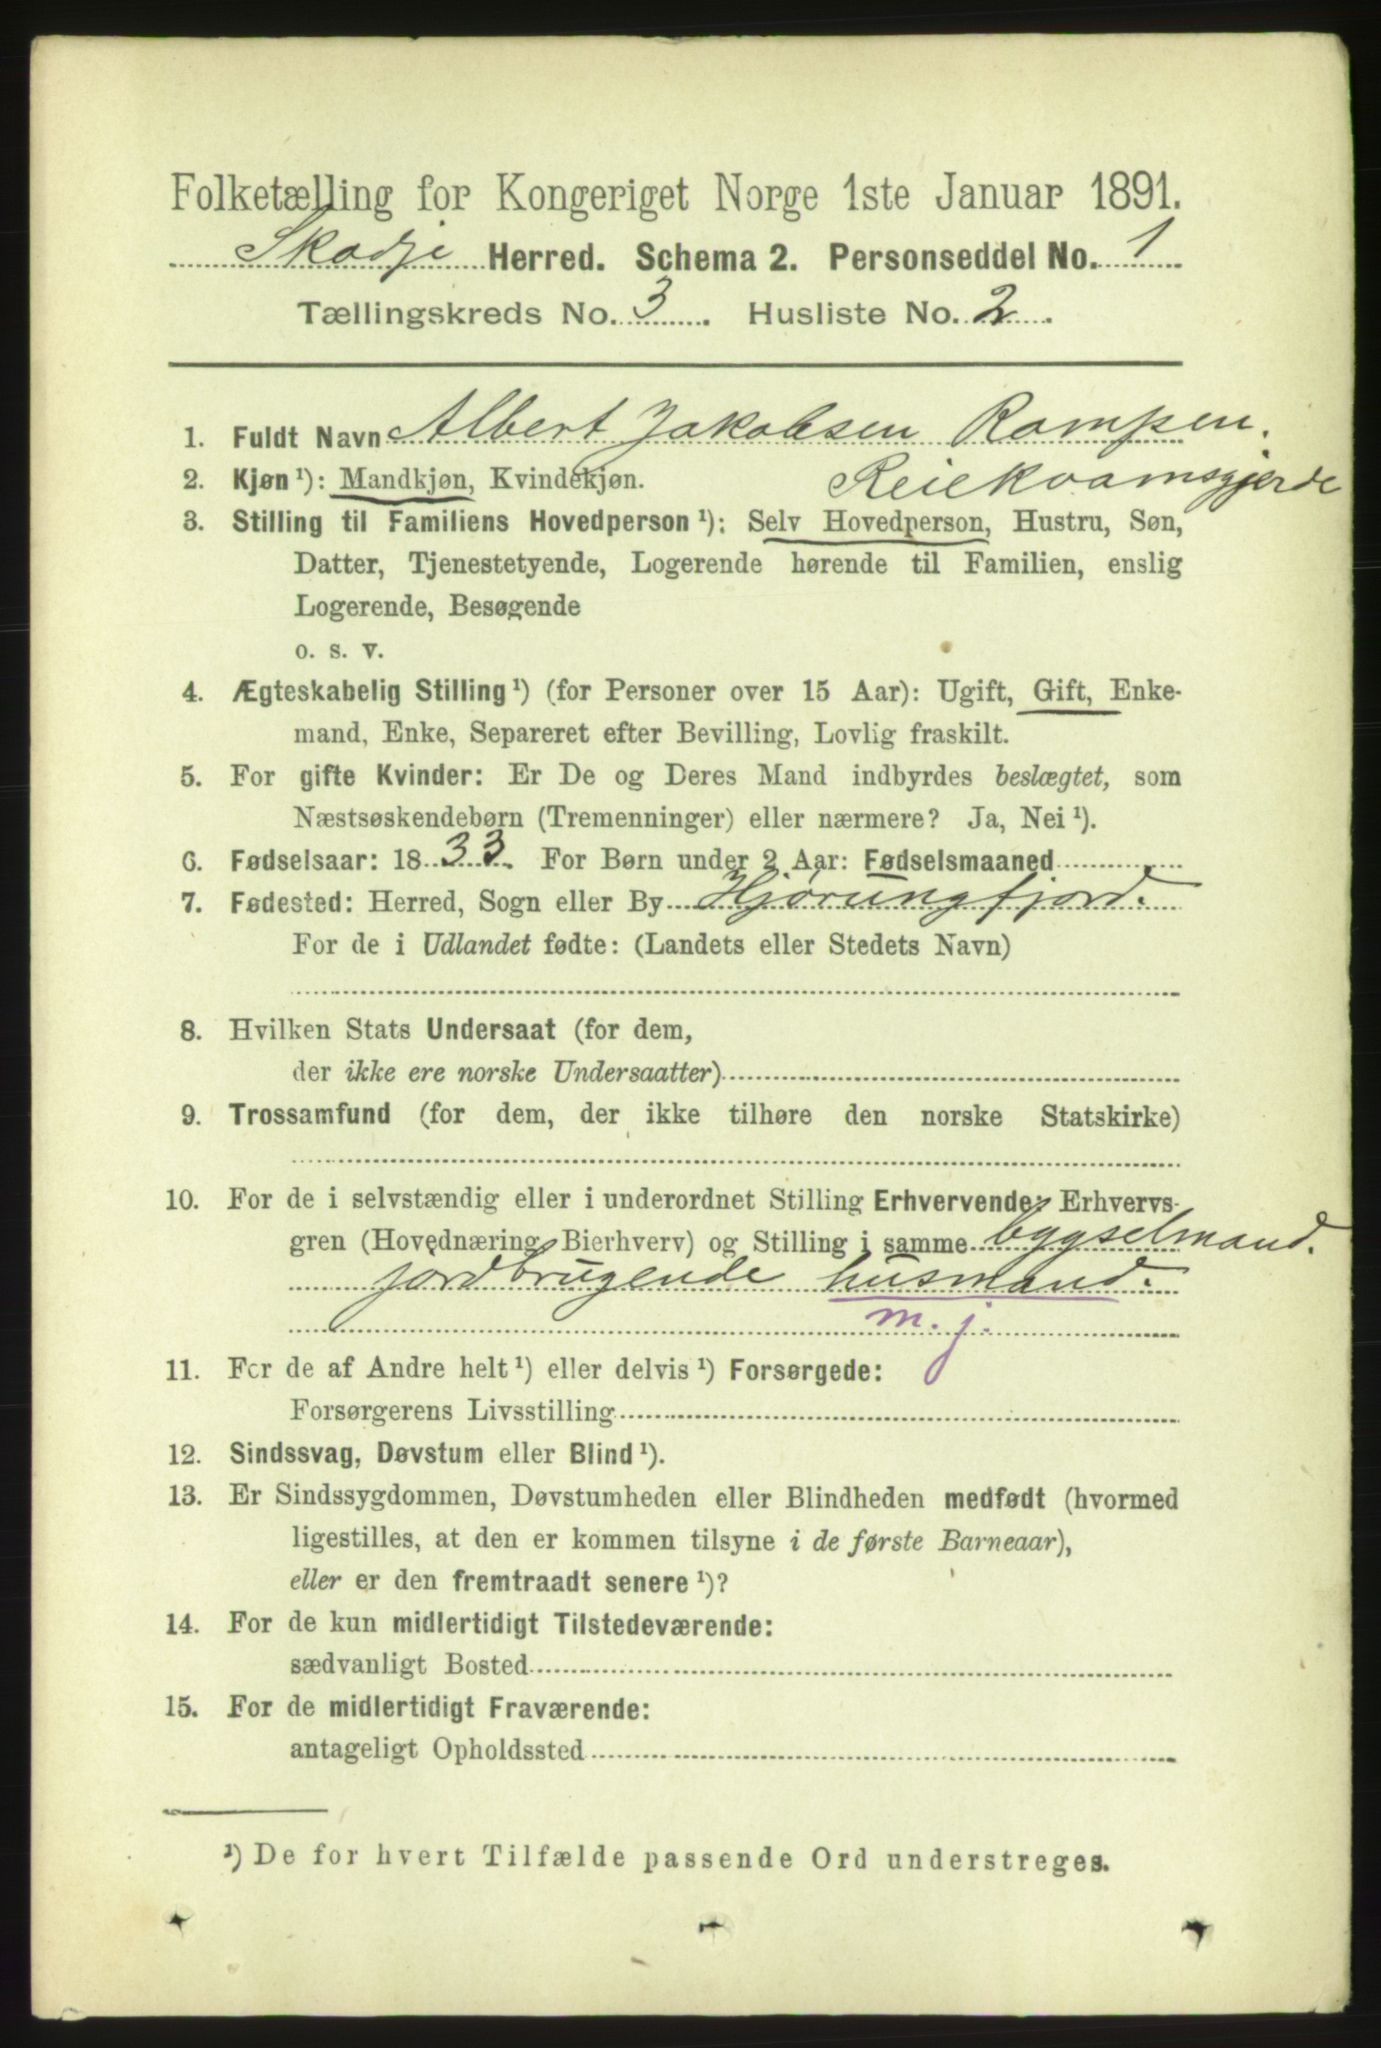 Folketælling for Kongeriget Norge 1ste Januar 1891.
Skodje Herred. Schema 2. Personseddel No. 1
Tællingskreds No. 3. Husliste No. 2.
1. Fuldt Navn Albert Jakobsen Rampen.
2. Kjøn ¹): Mandkjøn, Kvindekjøn. Reiekvamsgjerde
3. Stilling til Familiens Hovedperson ¹): Selv Hovedperson, Hustru, Søn,
Datter, Tjenestetyende, Logerende hørende til Familien, enslig
Logerende, Besøgende
o. s. v.
4. Ægteskabelig Stilling ¹) (for Personer over 15 Aar): Ugift, Gift, Enke-
mand, Enke, Separeret efter Bevilling, Lovlig fraskilt.
5. For gifte Kvinder: Er De og Deres Mand indbyrdes beslægtet, som
Næstsøskendebørn (Tremenninger) eller nærmere? Ja, Nei ¹).
6. Fødselsaar: 1833. For Børn under 2 Aar: Fødselsmaaned
7. Fødested: Herred, Sogn eller By Hjørungfjord.
For de i Udlandet fødte: (Landets eller Stedets Navn)
8. Hvilken Stats Undersaat (for dem,
der ikke ere norske Undersaatter)
9. Trossamfund (for dem, der ikke tilhøre den norske Statskirke)
10. For de i selvstændig eller i underordnet Stilling Erhvervende: Erhvervs-
gren (Hovednæring Bierhverv) og Stilling i samme bygselmand.
jordbrugende husmand.
m. j.
11. For de af Andre helt ¹) eller delvis ¹) Forsørgede:
Forsørgerens Livsstilling
12. Sindssvag, Døvstum eller Blind ¹).
13. Er Sindssygdommen, Døvstumheden eller Blindheden medfødt (hvormed
ligestilles, at den er kommen tilsyne i de første Barneaar),
eller er den fremtraadt senere ¹)?
14. For de kun midlertidigt Tilstedeværende:
sædvanligt Bosted
15. For de midlertidigt Fraværende:
antageligt Opholdssted
¹) De for hvert Tilfælde passende Ord understreges.